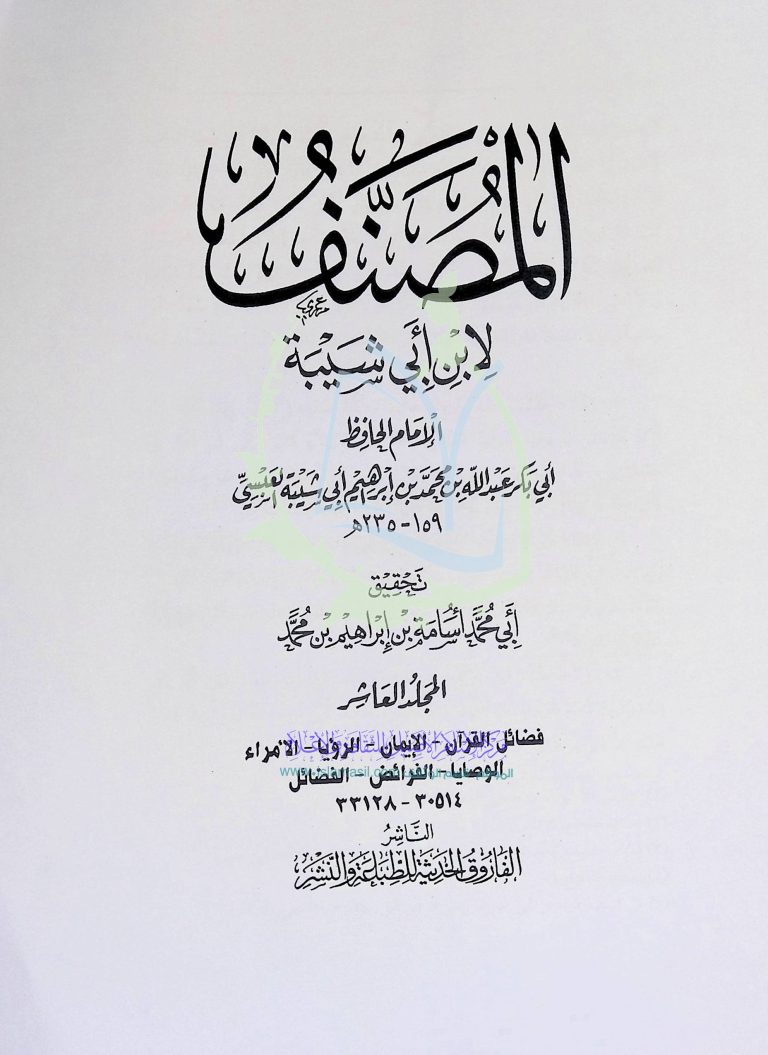 المُصَنَّفُ
لِابْنِ أَبِي شَيْبَة
الإمَام الحَافِظ
أبي بَكر عَبْد اللّه بْن مُحَمَّد بْن إبْرَاهِيْم أبي شَيْبَة العَبْسِيِّ
١٥٩ - ٢٣٥ هـ
تَحْقِيْق
أَبِي مُحَمَّد أُسَامَة بْن إِبْرَاهِيْم بْن مُحَمَّد
المجَلد العَاشِر
فضائل القرآن - الإيمان - الرؤيا - الأمراء
الوصايا - الفرائض - الفضائل
٣٠٥١٤ - ٣٣١٢٨
النَّاشِرُ
الفَارُوقُ الحَدِيثَة للطِّبَاعَة وَالنَّشْر